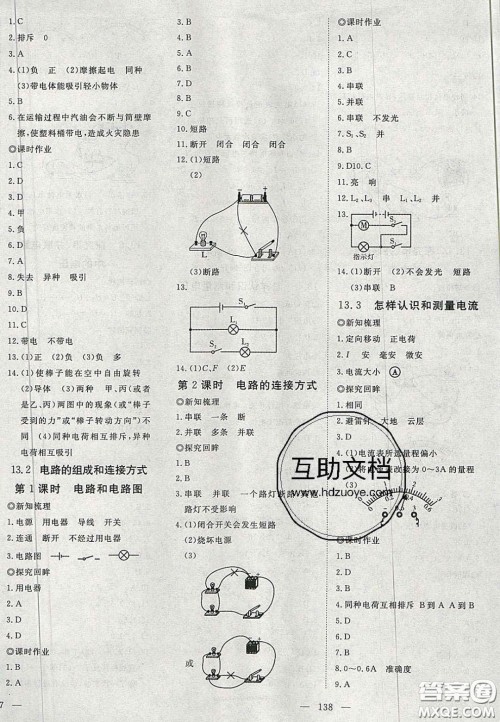 1. C
2. 排斥 0
3. A
4. (1)负 正 (2)摩擦起电 同种
(3)带电体能吸引轻小物体
5. B
6. 在运输过程中汽油会不断与筒壁摩
擦,使塑料桶带电,造成火灾隐患
◎课时作业
1. C
2. D
3. A
4. D
5. A
6. D
7. 负
8. A
9. 失去 异种 吸引
10. B
11. C
12. 带电 不带电
13. (1)正 (2)负
14. (1)使棒子能在空中自由旋转
(2)导体 (3)两种 甲、丙(或者
乙、丙)两图中的现象(或“棒子
受到的力”或“棒子转动方向”)不
同 (4)同种电荷相互排斥、异种
电荷相互吸引
13.2 电路的组成和连接方式
第1课时 电路和电路图
◎新知梳理
1. 电源 用电器 导线 开关
2. 连通 断开 不经过用电器
3. 电路图
◎探究回眸
1. 用电器
2. D
3. A
4. D
◎课时作业
1. B
2. A
3. B
4. D
5. A
6. C
7. C
8. A
9. C
10. 短路
11. 断开 闭合 闭合 闭合
12. (1)短路
(2)
L
(3)断路
13.
S₁
L₁
14. (1)C、F (2)E
第2课时 电路的连接方式
◎新知梳理
1. 串联 一条 断
2. 并联 多条 不影响
◎探究回眸
1. B
2. B
3. 串联 并联 一个路灯断路其他
路灯不受影响
4. (1)闭合开关会发生短路
(2)烧坏电源
或
◎课时作业
1. A
2. A
3. B
4. 串联
5. 并联
6. 串联 不发光
7. S₁、S₂ 并
8. B
9. D10. C
11. 亮 响
12. L₂、L₃ 串 L₁、L₂ 并
13.
M
S₁
S₂
指示灯
14. (1)断开 (2)不会发光 短路
(3)串联 B
13.3 怎样认识和测量电流
◎新知梳理
1. 定向移动 正电荷
2. I 安 毫安 微安
3. 电流大小 A
◎探究回眸
2. 避雷针 大地 云层
◎课时作业
1. B
2. D
3. C
4. 同种电荷互相排斥 B到A A到B
5. A
6. D
7. B
8. 0~0.6A 准确度
9. A
互助文档
www.hdzuoye.com
138
答案圈
MXQE.COM